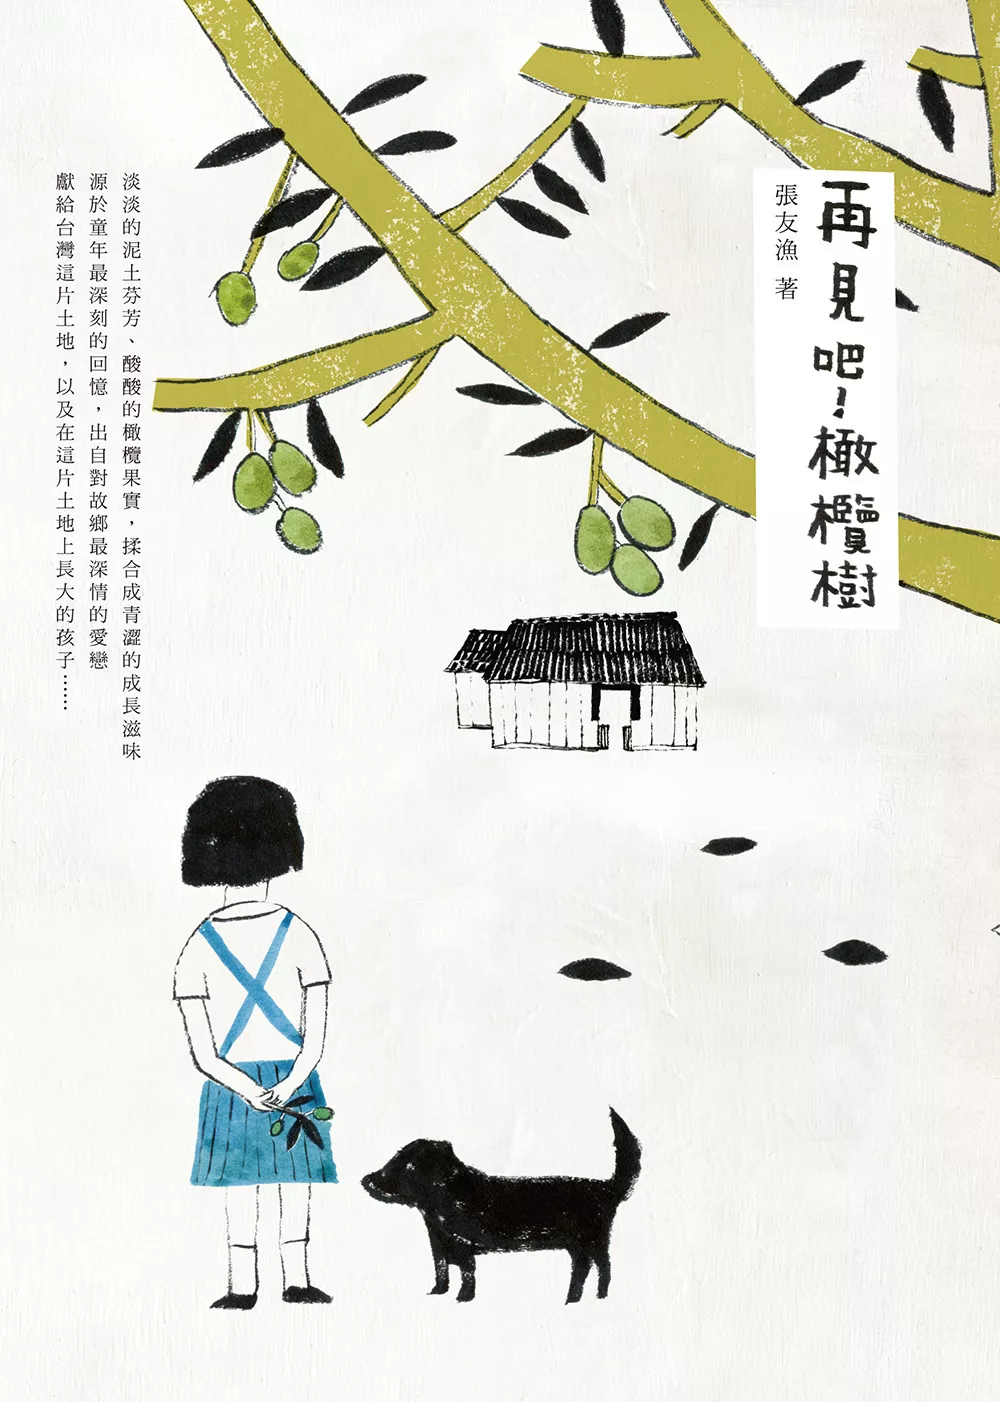 再見吧！橄欖樹
張友漁 著
淡淡的泥土芬芳、酸酸的橄欖果實，揉合成青澀的成長滋味
源於童年最深刻的回憶，出自對故鄉最深情的愛戀
獻給台灣這片土地，以及在這片土地上長大的孩子……